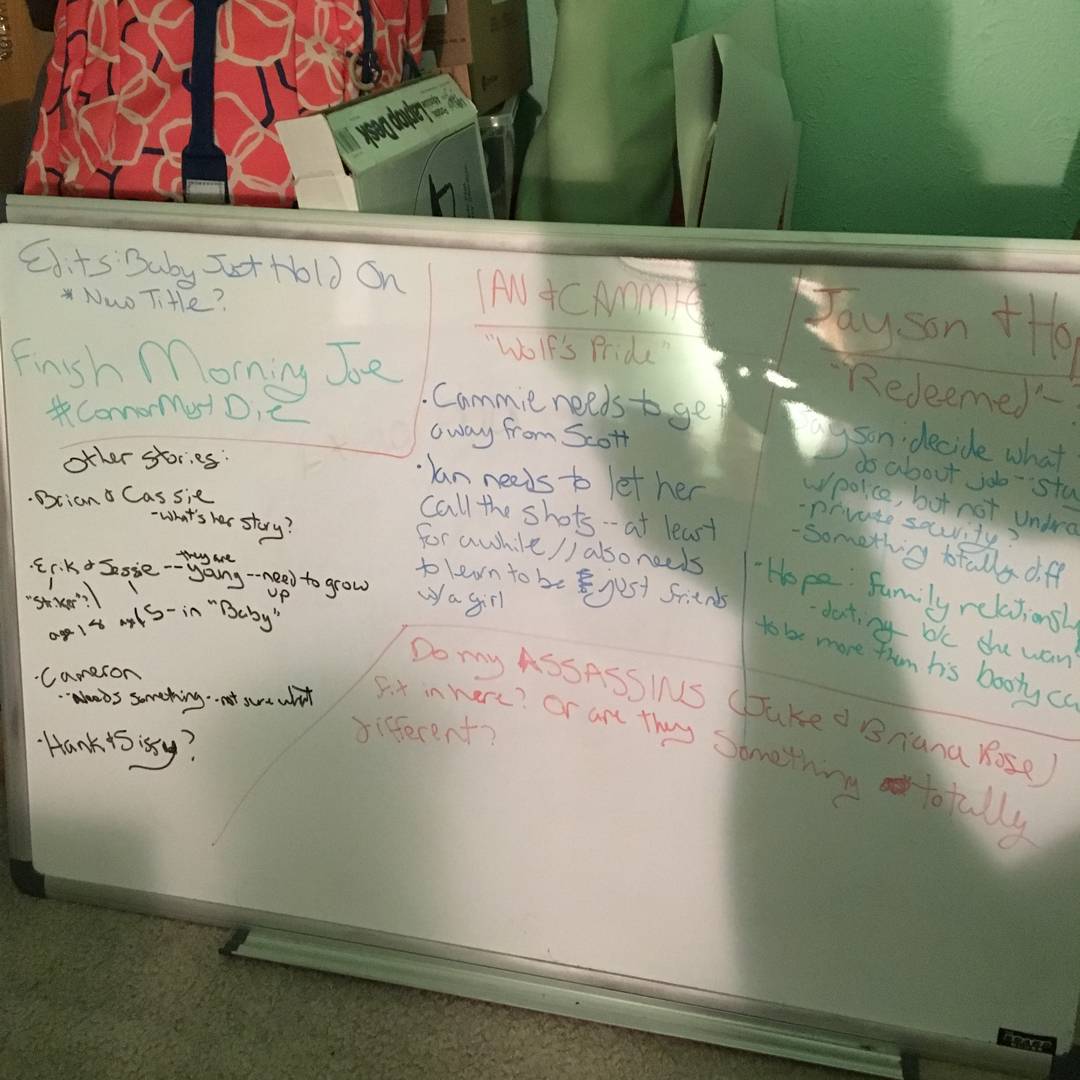 Laptop Desk
Edits: Baby Just Hold On
* New Title?
Finish Morning Joe
#ConnorMustDie
Other stories:
·Brian & Cassie
-what's her story?
·Erik & Jessie -- they are young -- need to grow up
"Striker"?
age 18
15 - in "Baby"
·Cameron
-- Needs something -- not sure what
·Hank & Sissy?
IAN & CAMMIE
"Wolf's Pride"
·Cammie needs to get
away from Scott
·Ian needs to let her
call the shots -- at least
for awhile // also needs
to learn to be just friends
w/ a girl
Jayson & Hop
"Redeemed" -
Jayson: decide what
do about job -- sta
w/ police, but not underc
- private security?
- Something totally diff
·Hope: family relationsh
- dating b/c she wan
to be more than his booty ca
Do my ASSASSINS (Juke & Briana Rose)
fit in here? Or are they something totally
different?